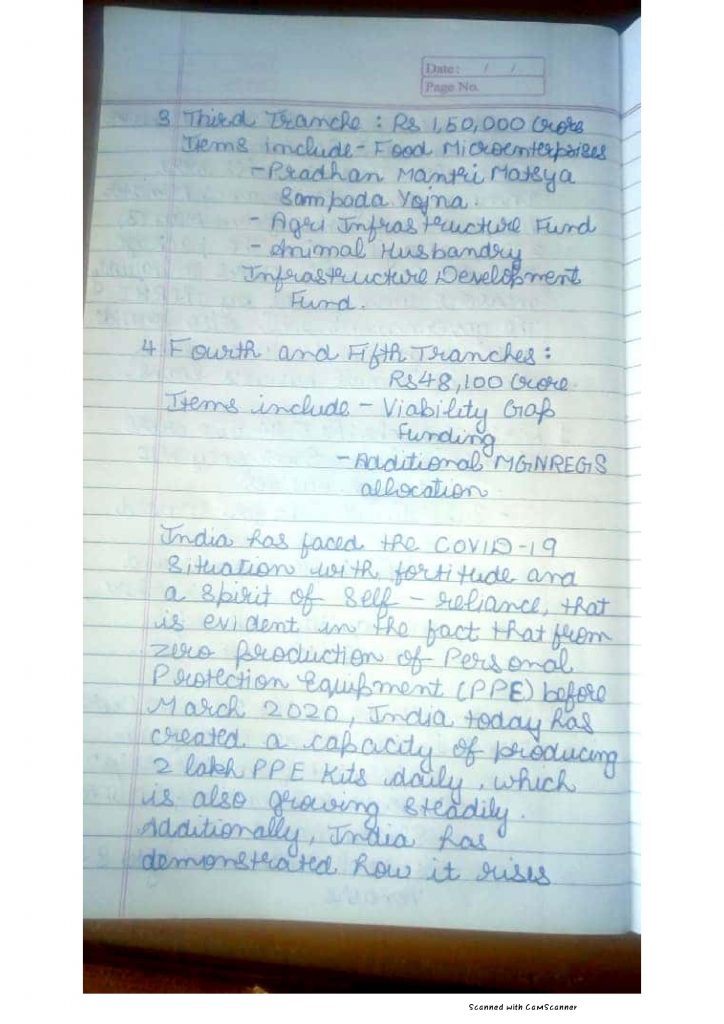 Date: / /
Page No.
3 Third Tranche : Rs 1,50,000 Crore
Items include - Food Microenterprises
- Pradhan Mantri Matsya
Sampada Yojna.
- Agri Infrastructure Fund
- Animal Husbandry
Infrastructure Development
Fund.
4 Fourth and Fifth Tranches :
Rs 48,100 Crore.
Items include - Viability Gap
Funding
- Additional MGNREGS
allocation.
India has faced the COVID-19
situation with fortitude and
a spirit of self - reliance, that
is evident in the fact that from
zero production of Personal
Protection Equipment (PPE) before
March 2020, India today has
created a capacity of producing
2 lakh PPE kits daily, which
is also growing steadily.
Additionally, India has
demonstrated how it rises
Scanned with CamScanner